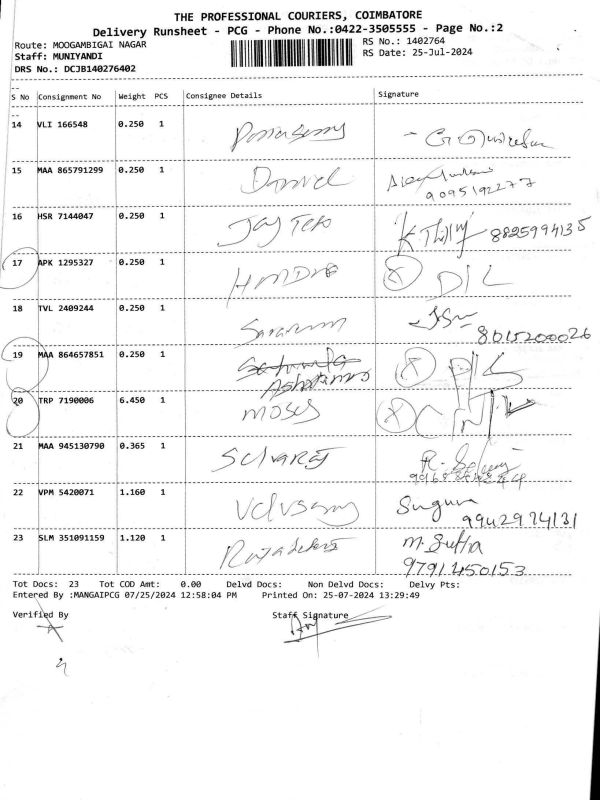 THE PROFESSIONAL COURIERS, COIMBATORE
Delivery Runsheet - PCG - Phone No.:0422-3505555 - Page No.:2
Route: MOOGAMBIGAI NAGAR RS No.: 1402764
Staff: MUNIYANDI RS Date: 25-Jul-2024
DRS No.: DCJB140276402
--
S No Consignment No Weight PCS Consignee Details Signature
--
14 VLI 166548 0.250 1
15 MAA 865791299 0.250 1 Daniel
9095192277
16 HSR 7144047 0.250 1 8825994135
17 APK 1295327 0.250 1 D/L
18 TVL 2409244 0.250 1
8015200026
19 MAA 864657851 0.250 1
20 TRP 7190006 6.450 1 moses
21 MAA 945130790 0.365 1 Selvaraj
22 VPM 5420071 1.160 1 Velusamy Suguna
9942974131
23 SLM 351091159 1.120 1 M. Sutha
9791450153
Tot Docs: 23 Tot COD Amt: 0.00 Delvd Docs: Non Delvd Docs: Delvy Pts:
Entered By :MANGAIPCG 07/25/2024 12:58:04 PM Printed On: 25-07-2024 13:29:49
Verified By Staff Signature